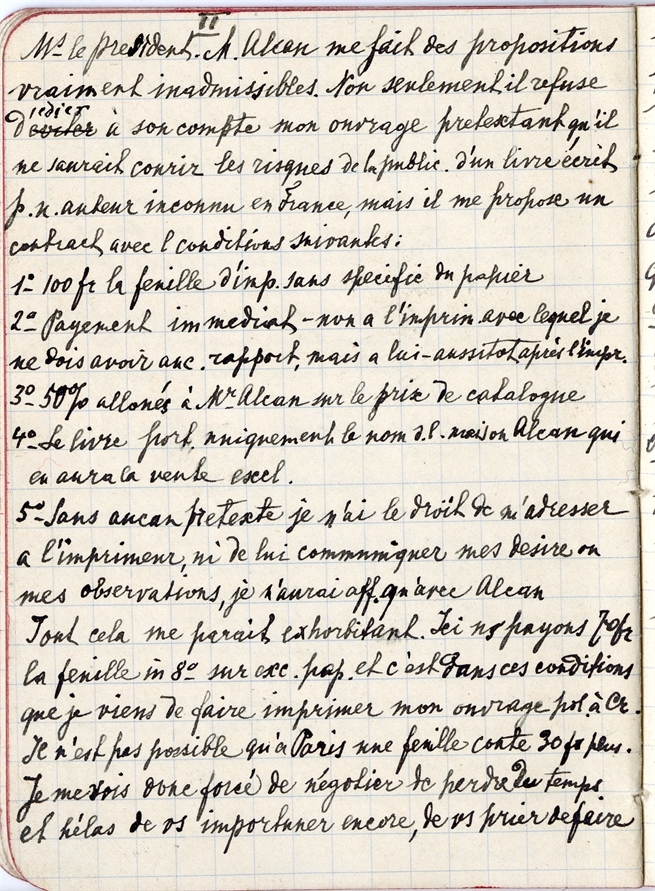 II
Mr le president. M. Alcan me fait des propositions
vraiment inadmissibles. Non seulement il refuse
d'edier à son compte mon ouvrage pretextant qu'il
ne saurait courir les risques de la public. d'un livre écrit
p. u. auteur inconnu en France, mais il me propose un
contract avec l conditions suivantes:
1º 100 fr la feuille d'imp. sans specific du papier
2º Payement immediat - non a l'imprim. avec lequel je
ne dois avoir auc. rapport, mais a lui - aussitot après l'impr.
3º 50% alloués à Mr Alcan sur le prix de catalogue
4º Le livre port. uniquement le nom d. l. maison Alcan qui
en aura la vente excl.
5º Sans aucun pretexte je n'ai le droit de m'adresser
a l'imprimeur, ni de lui communiquer mes desire ou
mes observations, je n'aurai aff. qu'avec Alcan
Tout cela me parait exhorbitant. Ici ns payons 70 fr
la feuille in 8º sur exc. pap. et c'est dans ces conditions
que je viens de faire imprimer mon ouvrage pol. à Cr.
Il n'est pas possible qu'a Paris une feuille conte 30 fr plus.
Je me vois donc forcé de négotier de perdre du temps
et hélas de vs importuner encore, de vs prier de faire